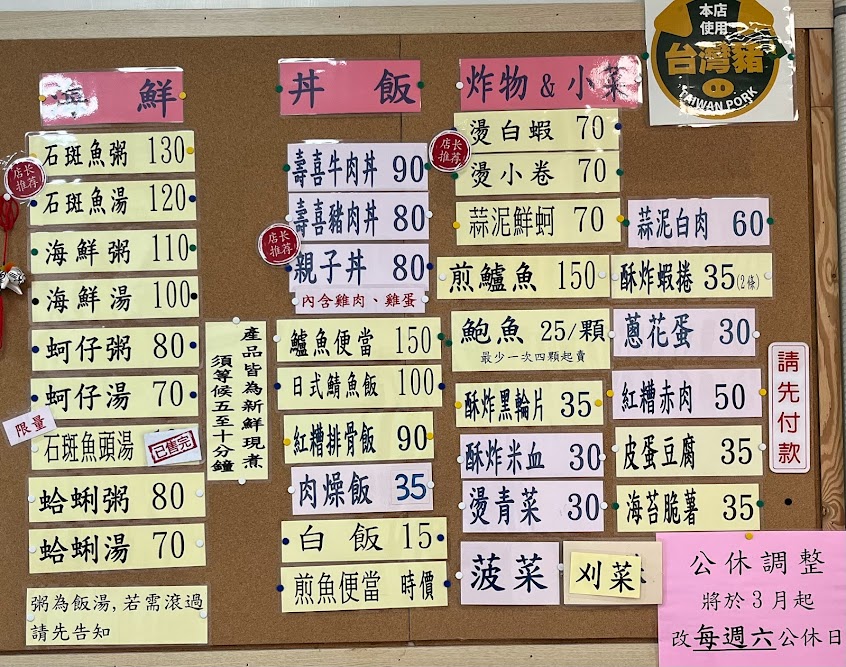 海鮮
石斑魚粥 130
店长
推荐
石斑魚湯 120
海鮮粥 110
海鮮湯 100
蚵仔粥 80
蚵仔湯 70
限量
石斑魚頭湯
已售完
蛤蜊粥 80
蛤蜊湯 70
粥為飯湯,若需滾過
請先告知
產品皆為新鮮現煮
須等候五至十分鐘
丼飯
壽喜牛肉丼 90
壽喜豬肉丼 80
店长
推荐
親子丼 80
內含雞肉、雞蛋
鱸魚便當 150
日式鯖魚飯 100
紅糟排骨飯 90
肉燥飯 35
白飯 15
煎魚便當 時價
炸物&小菜
店长
推荐
燙白蝦 70
燙小卷 70
蒜泥鮮蚵 70
煎鱸魚 150
鮑魚 25/顆
最少一次四顆起賣
酥炸黑輪片 35
酥炸米血 30
燙青菜 30
菠菜
刈菜
蒜泥白肉 60
酥炸蝦捲 35(2條)
蔥花蛋 30
紅糟赤肉 50
皮蛋豆腐 35
海苔脆薯 35
本店
使用
台灣豬
TAIWAN PORK
請先付款
公休調整
將於3月起
改每週六公休日